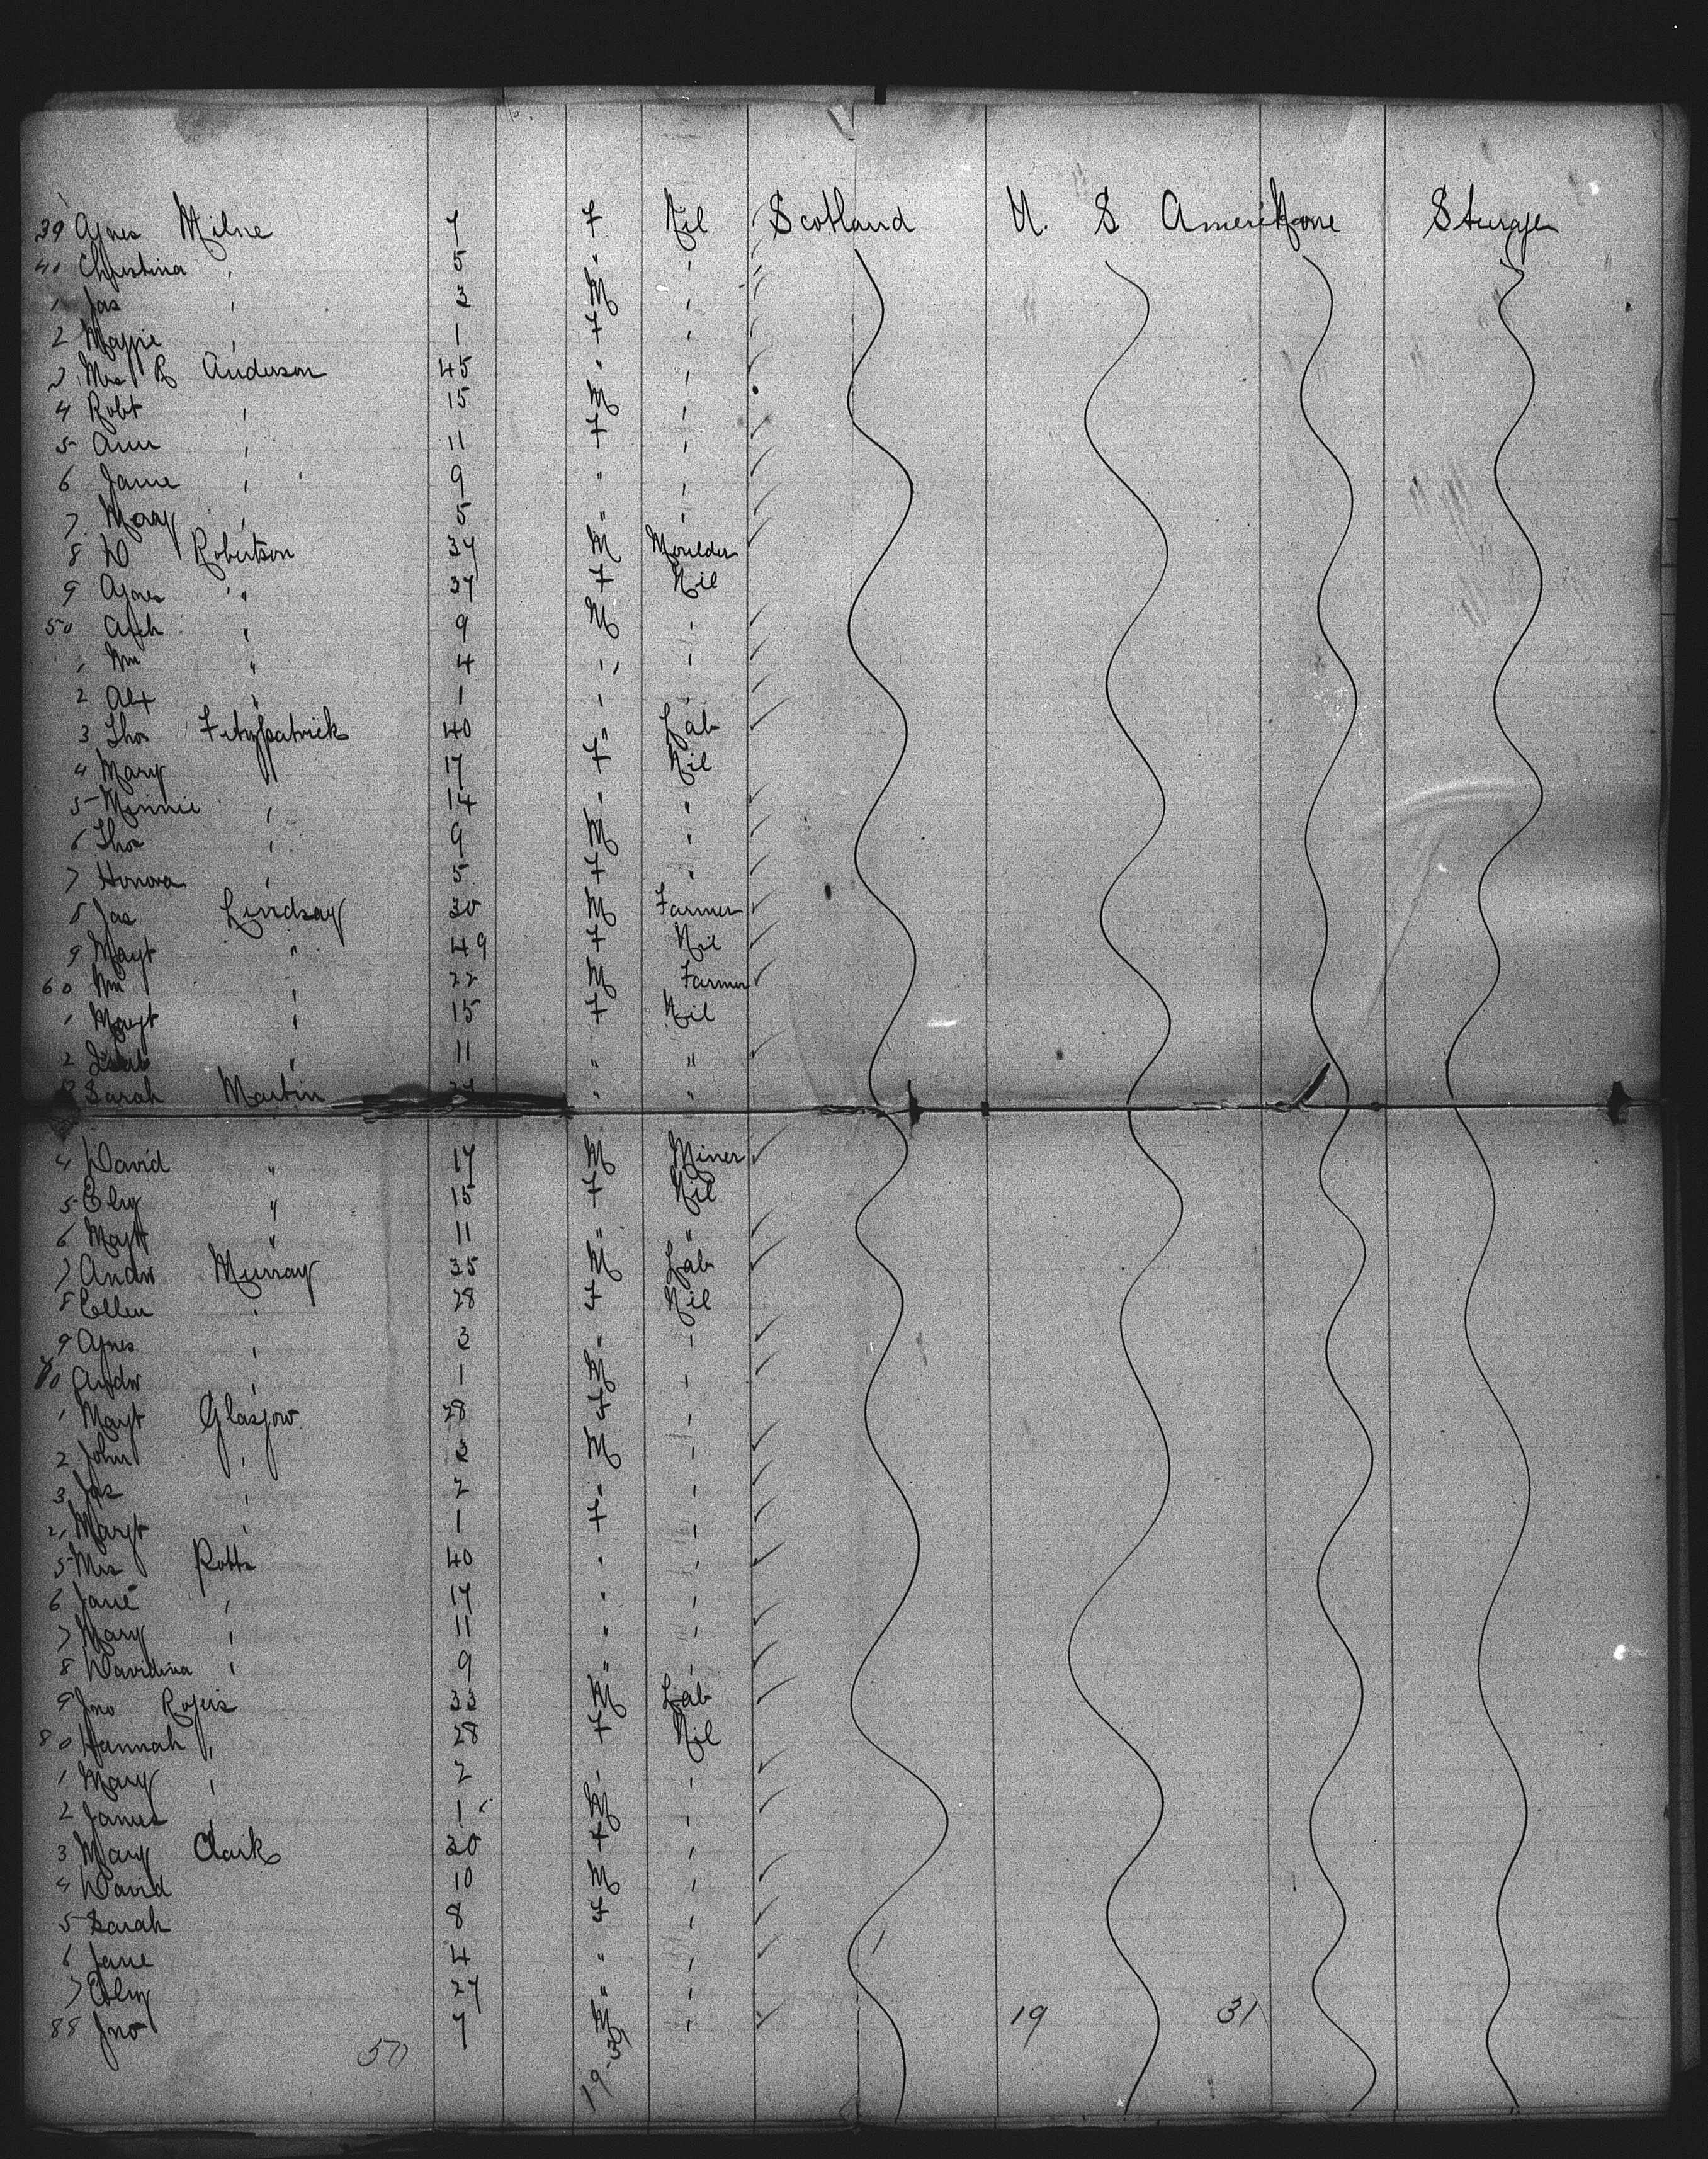 39 Agnes Milne 7 F Nil Scotland U. S America None Steerage
40 Christina " 5 " "
1 Jas " 3 M "
2 Maggie " 1 F "
3 Mrs R Anderson 45 " "
4 Robt " 15 M "
5 Ann " 11 F "
6 Jane " 9 " "
7 Mary " 5 " "
8 D Robertson 37 M Moulder
9 Agnes " 37 F Nil
50 Arch " 9 M "
1 Wm " 4 " "
2 Alex " 1 " "
3 Thos Fitzpatrick 40 " Lab
4 Mary " 17 F Nil
5 Minnie " 14 " "
6 Thos " 9 M "
7 Honora " 5 F "
8 Jas Lindsay 30 M Farmer
9 Magt " 49 F Nil
60 Wm " 22 M Farmer
1 Magt " 15 F Nil
2 " 11 " "
3 Sarah Martin " "
4 David " 17 M Miner
5 Eliz " 15 F Nil
6 Magt " 11 " "
7 Andw Murray 35 M Lab
8 Ellen " 28 F Nil
9 Agnes " 3 " "
70 Andw " 1 M "
1 Magt Glasgow 28 F "
2 John " 3 M "
3 Jas " 2 " "
4 Margt " 1 F "
5 Mrs Potts 40 " "
6 Jane " 17 " "
7 Mary " 11 " "
8 Davidina " 9 " "
9 Jno Rogers 33 M Lab
80 Hannah " 28 F Nil
1 Mary " 2 " "
2 James " 1 M "
3 Mary Clark 30 F "
4 David 10 M "
5 Sarah 8 F "
6 Jane 4 " "
7 Eliz 27 " "
88 Jno 7 M " 19 31
50 19-31